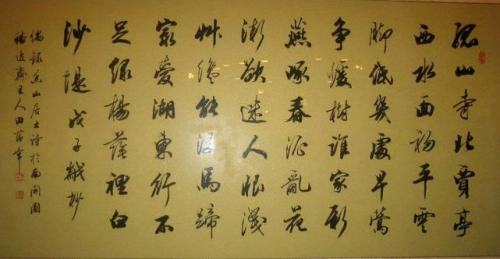 孤山寺北賈亭
西水面初平雲
腳低幾處早鶯
爭暖樹誰家新
燕啄春泥亂花
漸欲迷人眼淺
艸纔能沒馬蹄
最愛湖東行不
足綠楊蔭裡白
沙堤戊子秋杪
偶錄香山居士詩於
齋主人田